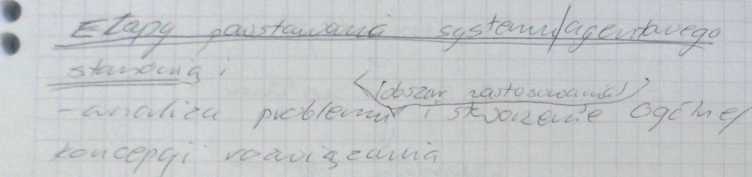 Etapy powstawania systemu agentowego
stanowią:
(obszar zastosowania)
- analiza problemu i stworzenie ogólnej
koncepcji rozwiązania